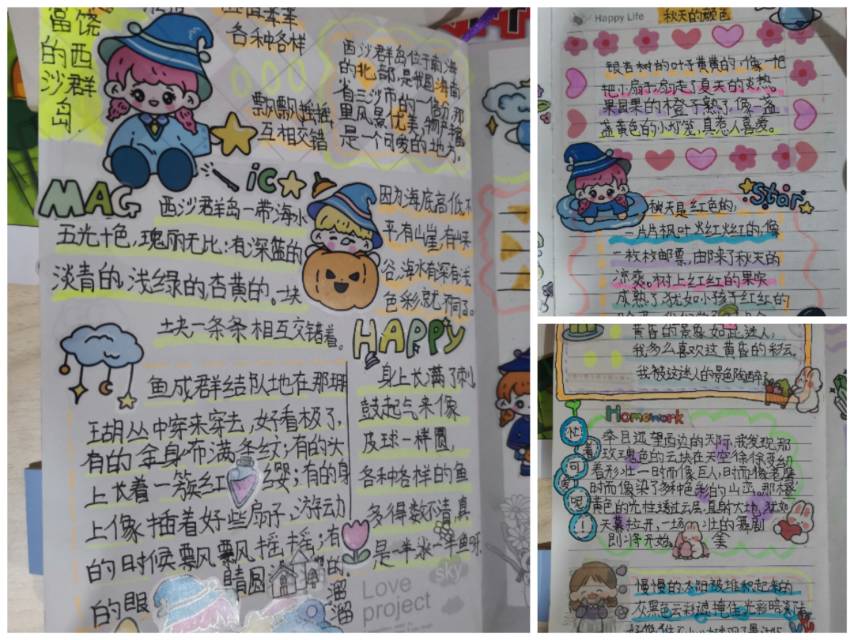 富饶
的西
沙群
岛
各种各样
飘飘摇摇
互相交错
西沙群岛位于南海
的北部,是我国海南
省三沙市的一部分,那
里风景优美,物产丰富
是一个可爱的地方。
MAGic
西沙群岛一带海水
五光十色,瑰丽无比:有深蓝的
淡青的,浅绿的,杏黄的。一块
块,一条条相互交错着。
因为海底高低不
平有山崖,有峡
谷,海水有深有浅
色彩就不同了。
HAPPY
鱼成群结队地在那珊
瑚丛中穿来穿去,好看极了,
有的全身布满条纹;有的头
上长着一簇红缨;有的身
上像插着好些扇子,游动
的时候飘飘摇摇;有
的眼睛圆溜溜的,
身上长满了刺
鼓起气来像
皮球一样圆
各种各样的鱼
多得数不清,真
是一半水一半鱼呀
Love
project
sky
Happy Life
秋天的颜色
银杏树的叶子黄黄的,像一把
把小扇子,扇走了夏天的炎热。
果园里的橙子熟了,像一盏
盏黄色的小灯笼,真惹人喜爱。
Star
秋天是红色的,
一片片枫叶火红火红的,像
一枚枚邮票,由来了秋天的
凉爽。树上红红的果实
成熟了,犹如小孩子红红的
黄昏的景象如此迷人,
我多么喜欢这黄昏的彩云。
我被这迷人的景色陶醉了
Homework
忙着可爱呢!
举目远望西边的天际,我发现,那
玫瑰色的云块在天空徐徐浮动
着形状一时而像巨人,时而像苍鹰
时而像染了多种色彩的山峦。那橙
黄色的光柱透过云层,直射大地,犹如
天幕拉开,一场
壮的舞剧
即将开始。
慢慢的,太阳被堆积起来的
灰黑色云彩遮掩住,光彩暗淡